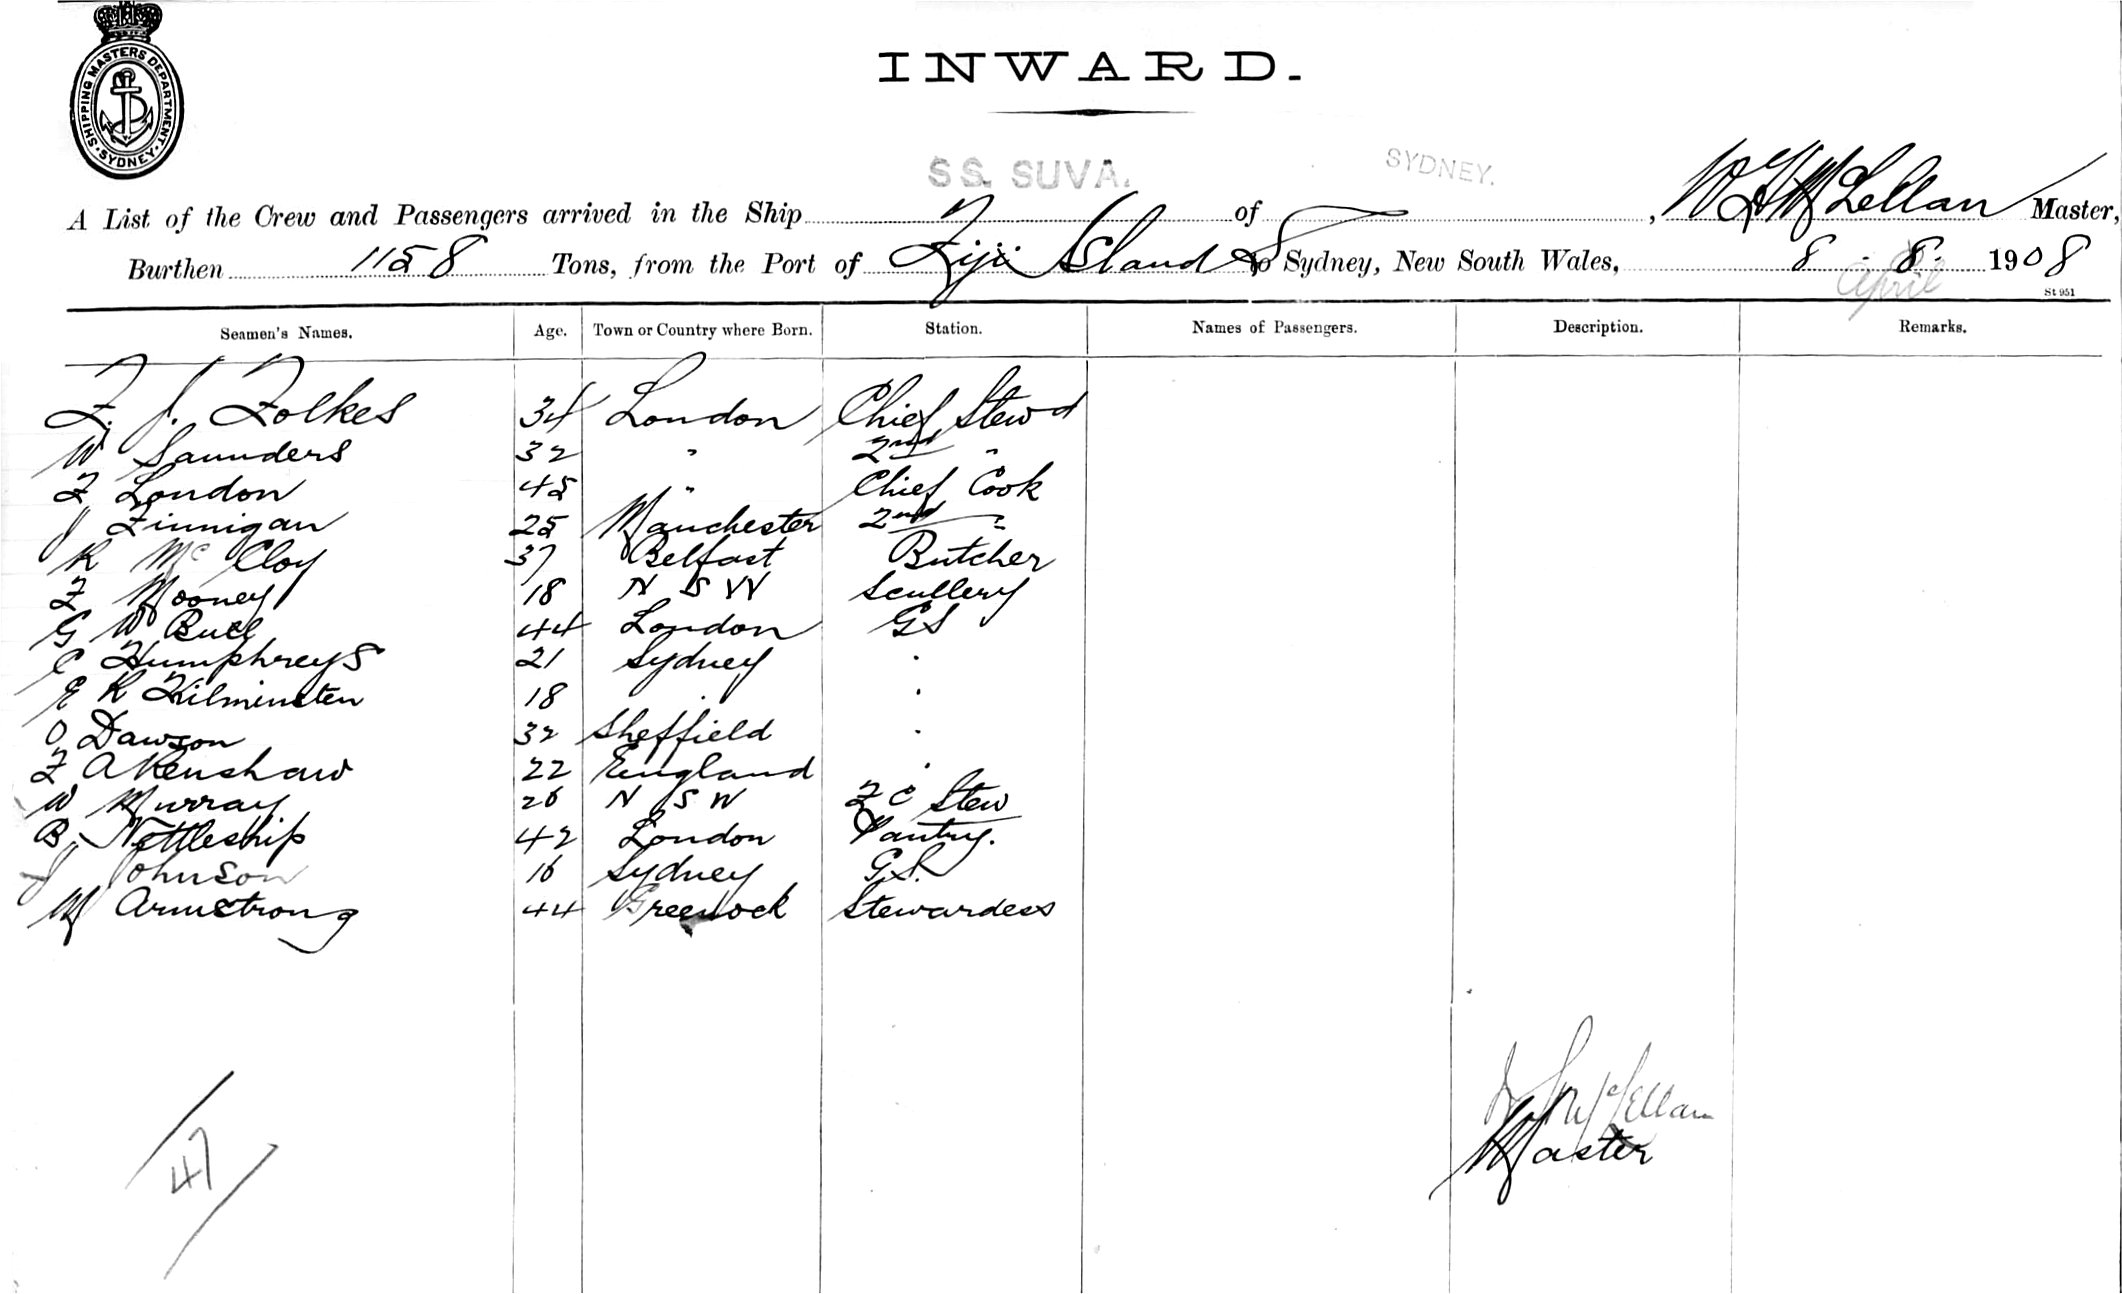 SHIPPING MASTERS DEPARTMENT. SYDNEY.
INWARD.
SS. SUVA. SYDNEY.
A List of the Crew and Passengers arrived in the Ship of , McLellan Master,
Burthen 1158 Tons, from the Port of Fiji Islands to Sydney, New South Wales, 8 . 8. 1908
April
St 951
Seamen's Names. Age. Town or Country where Born. Station. Names of Passengers. Description. Remarks.
F. J. Folkes 34 London Chief Stewd
W Saunders 32 " 2nd "
F London 45 " Chief Cook
J Finnigan 25 Manchester 2nd "
R McCloy 37 Belfast Butcher
F Mooney 18 N S W Scullery
G W Buel 44 London GS
C Humphreys 21 Sydney .
E R Kilminster 18 . .
O Dawson 32 Sheffield .
F A Renshaw 22 England .
W Murray 26 N S W F C Stew
B. Nettleship 42 London Pantry.
J Johnson 16 Sydney G.S.
M Armstrong 44 Greenock Stewardess
McLellan
Master
47